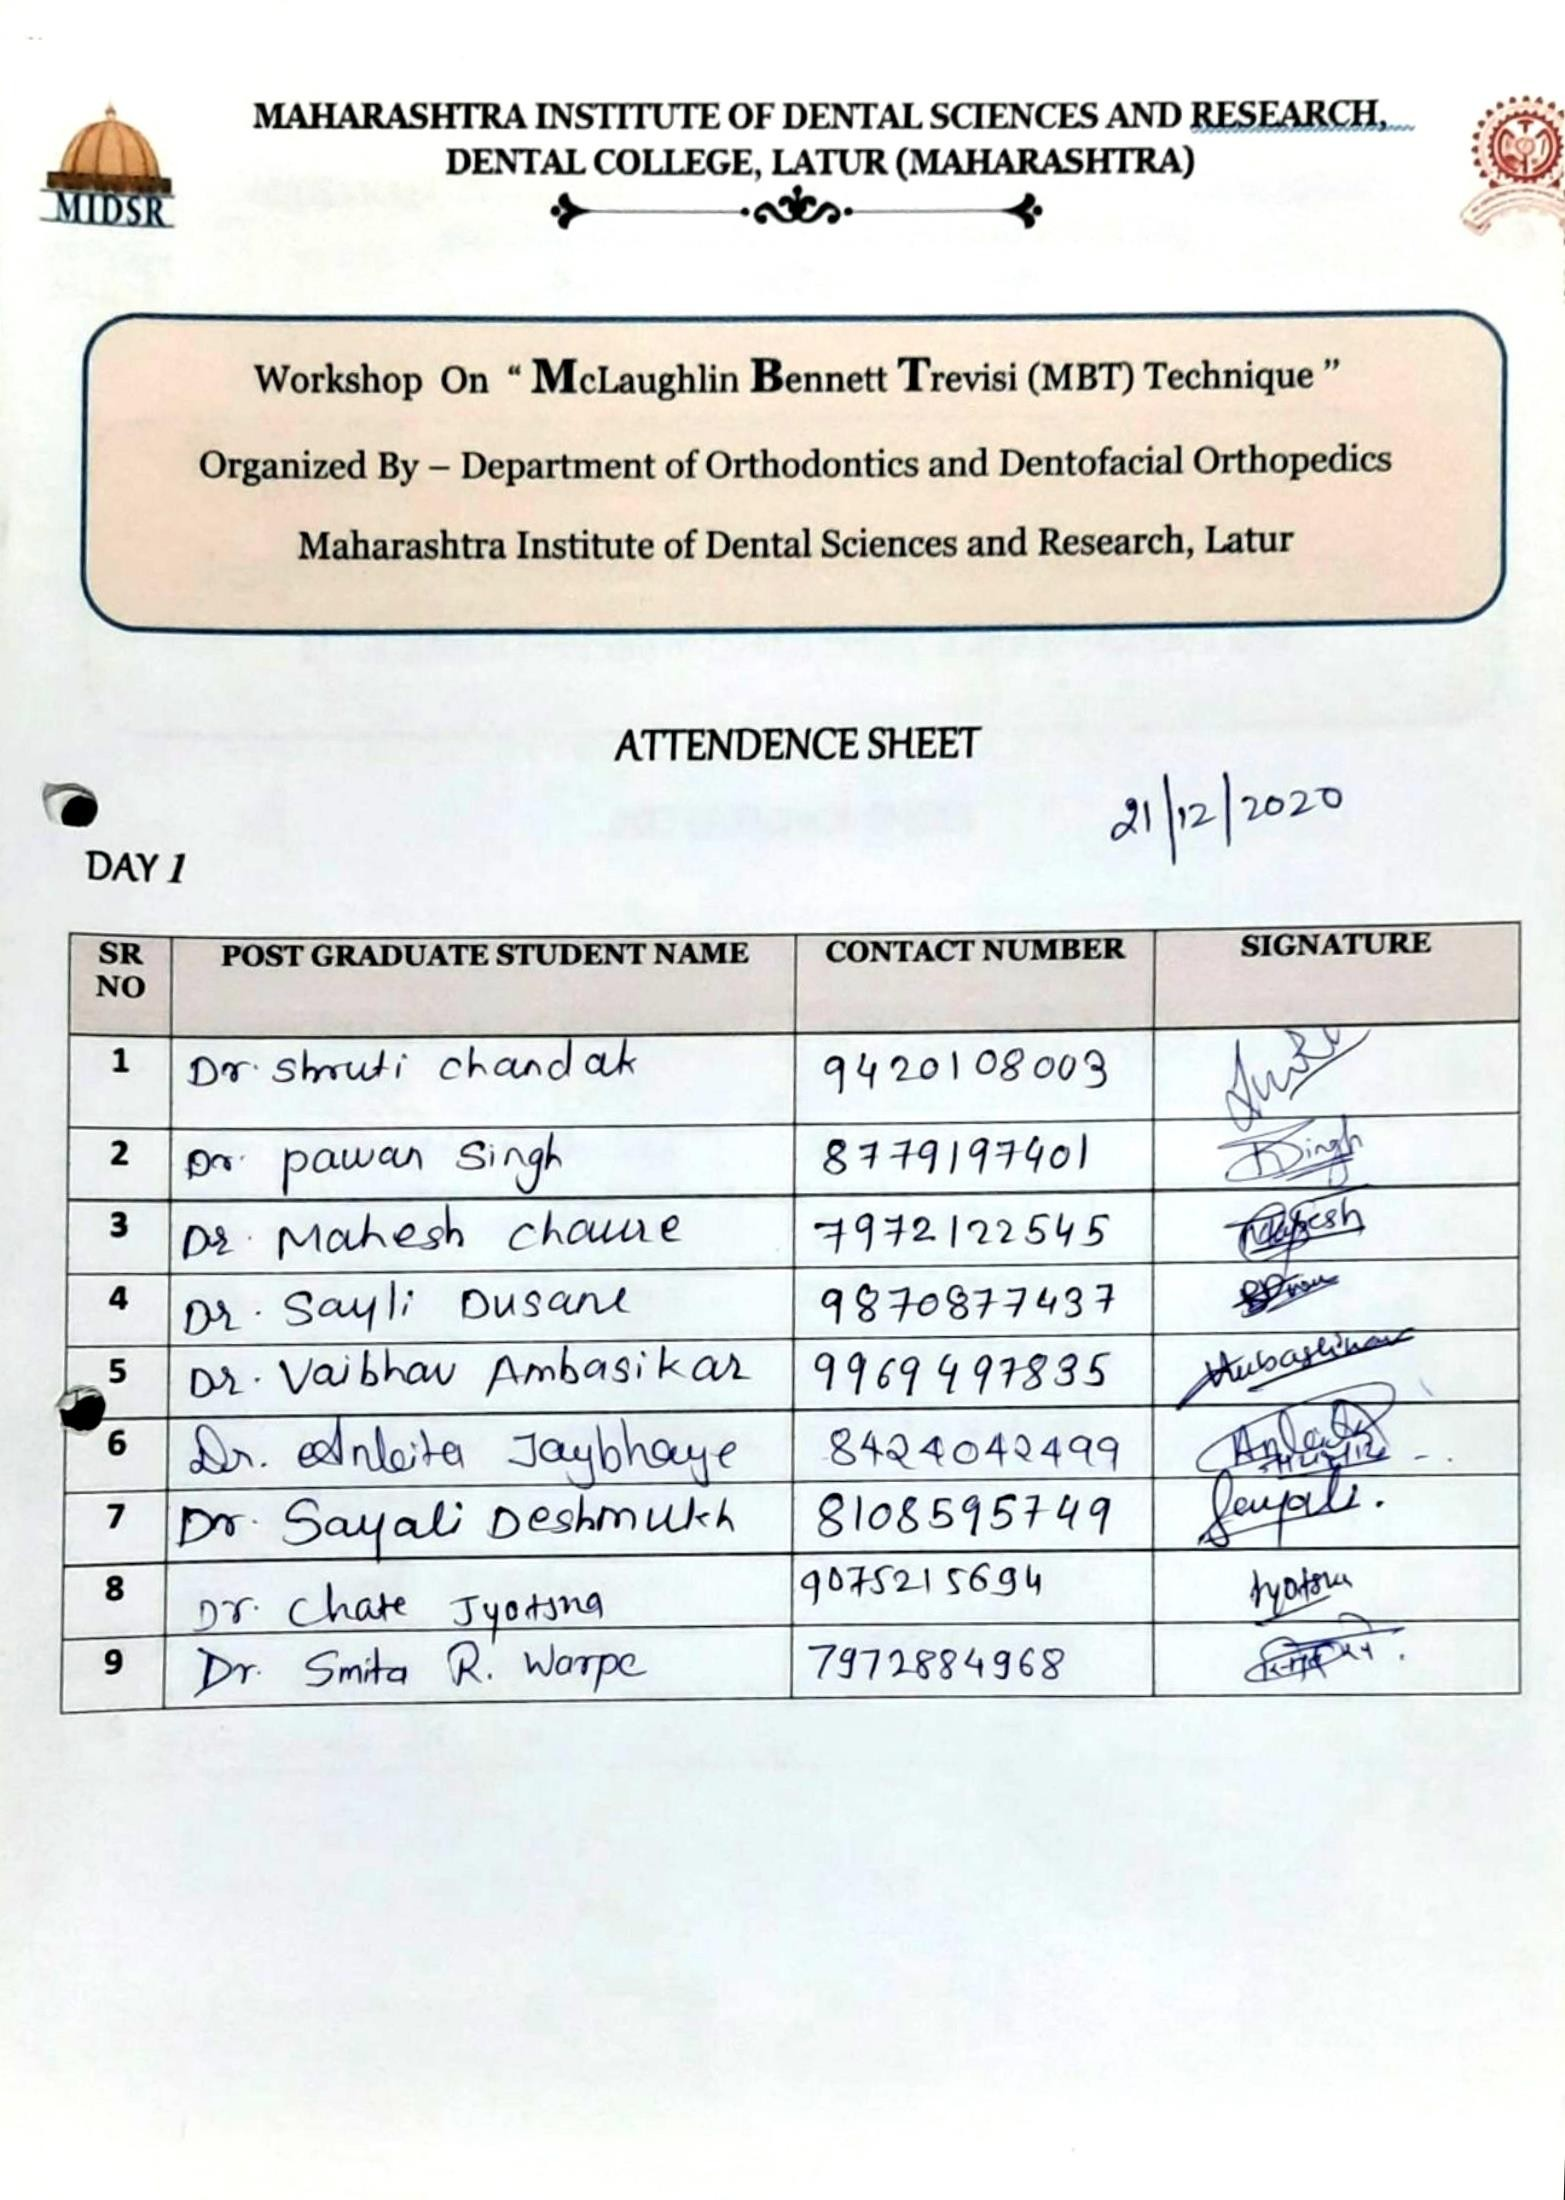 MAHARASHTRA INSTITUTE OF DENTAL SCIENCES AND RESEARCH,
DENTAL COLLEGE, LATUR (MAHARASHTRA)
MIDSR
Workshop On “ McLaughlin Bennett Trevisi (MBT) Technique ”
Organized By – Department of Orthodontics and Dentofacial Orthopedics
Maharashtra Institute of Dental Sciences and Research, Latur
ATTENDENCE SHEET
21/12/2020
DAY 1
SR NO POST GRADUATE STUDENT NAME CONTACT NUMBER SIGNATURE
1 Dr. Shruti Chandak 9420108003
2 Dr. Pawan Singh 8779197401 Singh
3 Dr. Mahesh Chaure 7972122545
4 Dr. Sayli Dusane 9870877437
5 Dr. Vaibhav Ambasikar 9969497835
6 Dr. Ankita Jaybhaye 8424042499
7 Dr. Sayali Deshmukh 8108595749 Sayali.
8 Dr. Chate Jyotsna 9075215694 Jyotsna
9 Dr. Smita R. Warpe 7972884968